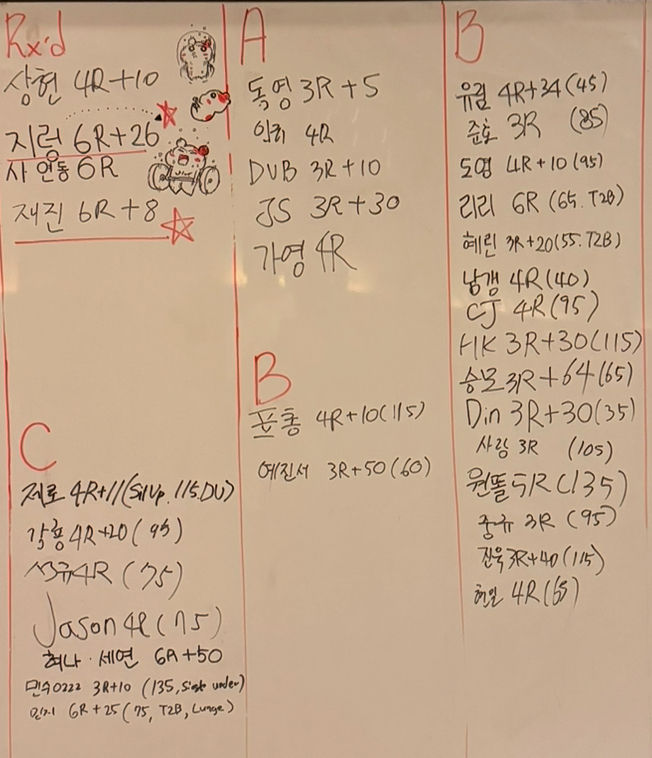 Rx'd
상현 4R+10
지렁 6R+26
사 안동 6R
재진 6R+8
C
제로 4R+11(Situp, 115.DU)
각홍 4R+20(95)
4R (75)
Jason 4R (75)
혀나 · 세연 6R+50
민수0222 3R+10 (135, Single under)
민지 6R+25(75, T2B, Lunge)
A
독영 3R+5
4R
DVB 3R+10
JS 3R+30
가영 4R
B
프홍 4R+10(115)
예진서 3R+50(60)
B
유림 4R+34(45)
준호 3R (85)
도영 4R+10(95)
리리 6R (65.T2B)
혜린 3R+20(55.T2B)
남갱 4R(40)
CJ 4R(95)
HK 3R+30(115)
승모 3R+64(65)
Din 3R+30(35)
사랑 3R (105)
원똘 5R (135)
중규 3R (95)
진욱 3R+40(115)
현일 4R(65)